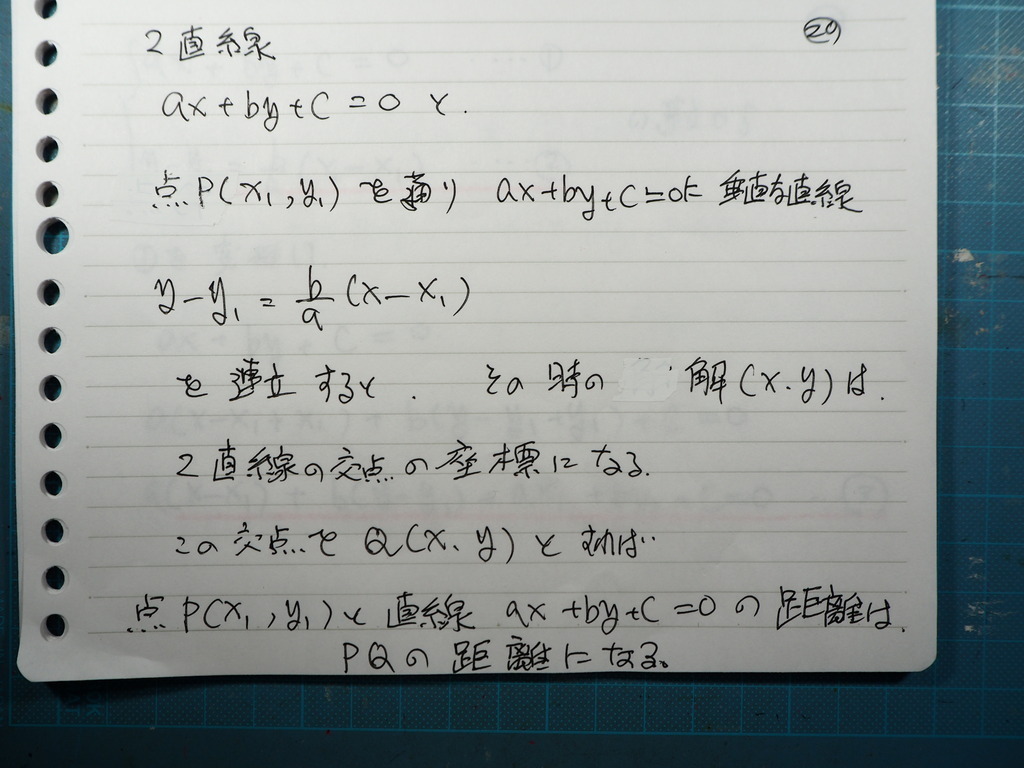 ㉙
2直線
ax+by+C=0 と.
点P(x₁,y₁)を通り ax+by+C=0に垂直な直線
y-y₁=b/a(x-x₁)
を連立すると. その時の 解(x.y)は.
2直線の交点の座標になる.
この交点をQ(x、y)とすれば
点P(x₁,y₁)と直線 ax+by+C=0の距離は.
PQの距離になる。